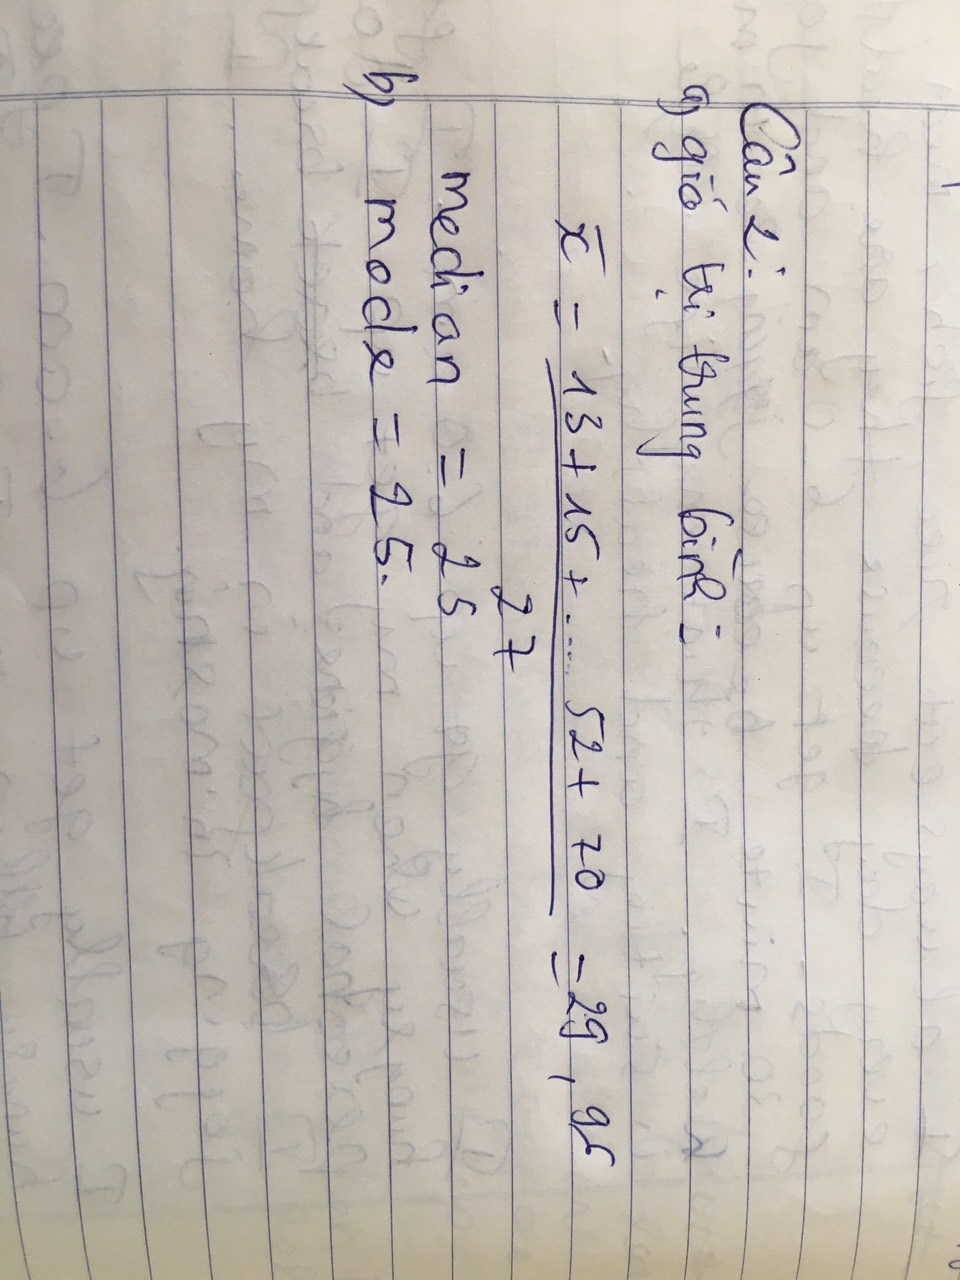 Câu 2:
a) giá trị trung bình:
x̄ = 13 + 15 + .... 52 + 70 = 29, 96
27
median = 25
b) mode = 25.